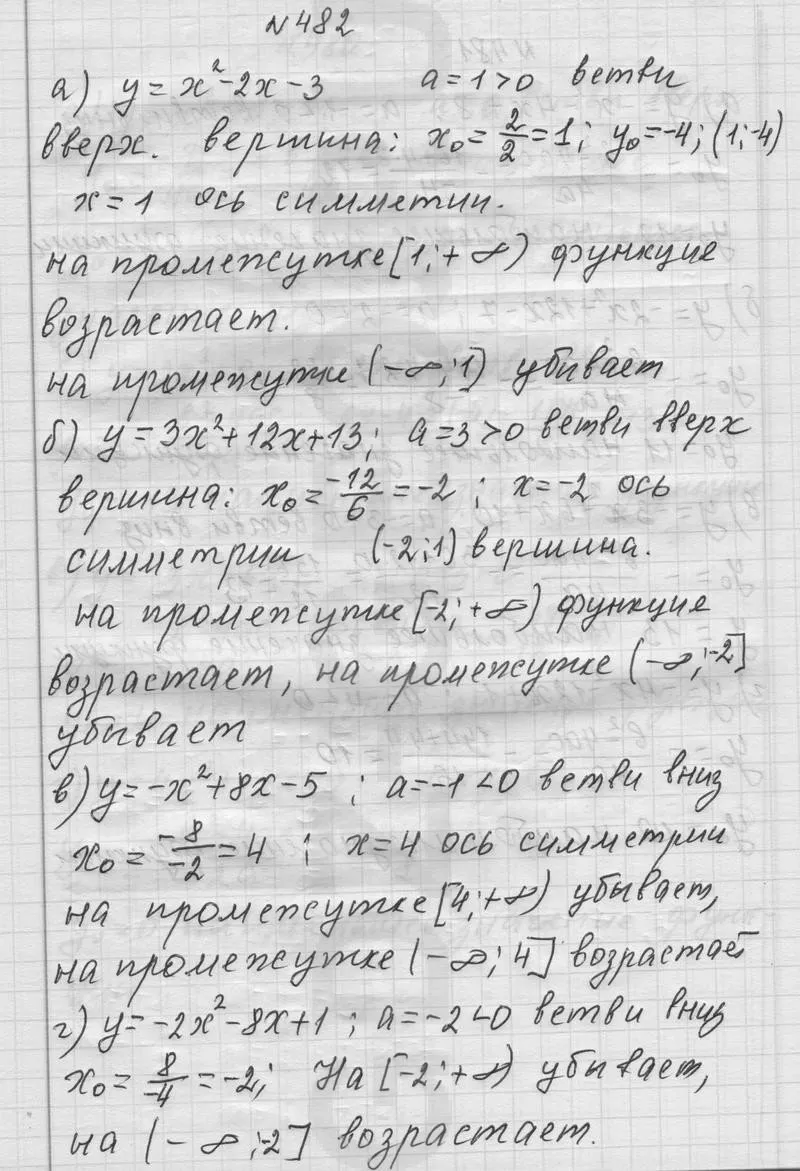 №482
а) y = x² - 2x - 3 a = 1 > 0 ветви
вверх. вершина: x₀ = 2/2 = 1; y₀ = -4; (1; -4)
x = 1 ось симметии.
на промежутке [1; + ∞) функция
возрастает.
на промежутке (-∞; 1] убывает
б) y = 3x² + 12x + 13; a = 3 > 0 ветви вверх
вершина: x₀ = -12/6 = -2; x = -2 ось
симметрии (-2; 1) вершина.
на промежутке [-2; + ∞) функция
возрастает, на промежутке (-∞; -2]
убывает
в) y = -x² + 8x - 5; a = -1 < 0 ветви вниз
x₀ = -8/-2 = 4; x = 4 ось симметрии
на промежутке [4; +∞) убывает,
на промежутке (-∞; 4] возрастает
г) y = -2x² - 8x + 1; a = -2 < 0 ветви вниз
x₀ = 8/-4 = -2; На [-2; +∞) убывает,
на (-∞; -2] возрастает.